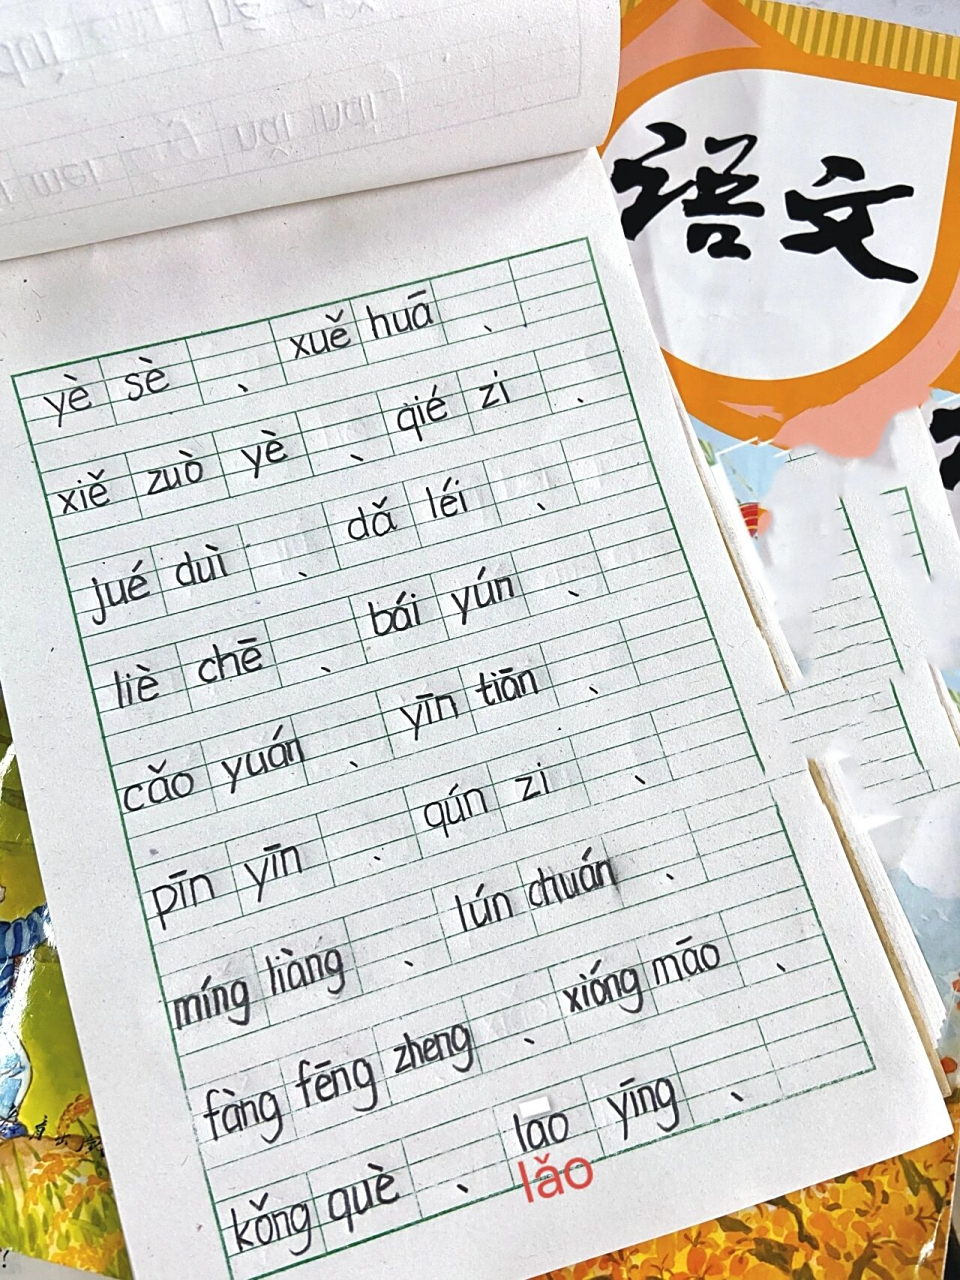 语文
yè sè 、 xuě huā 、
xiě zuò yè 、 qié zi 、
jué duì 、 dǎ léi 、
liè chē 、 bái yún 、
cǎo yuán 、 yīn tiān 、
pīn yīn 、 qún zi 、
míng liàng 、 lún chuán 、
fàng fēng zheng 、 xióng māo 、
kǒng què 、 lao yīng 、
lǎo